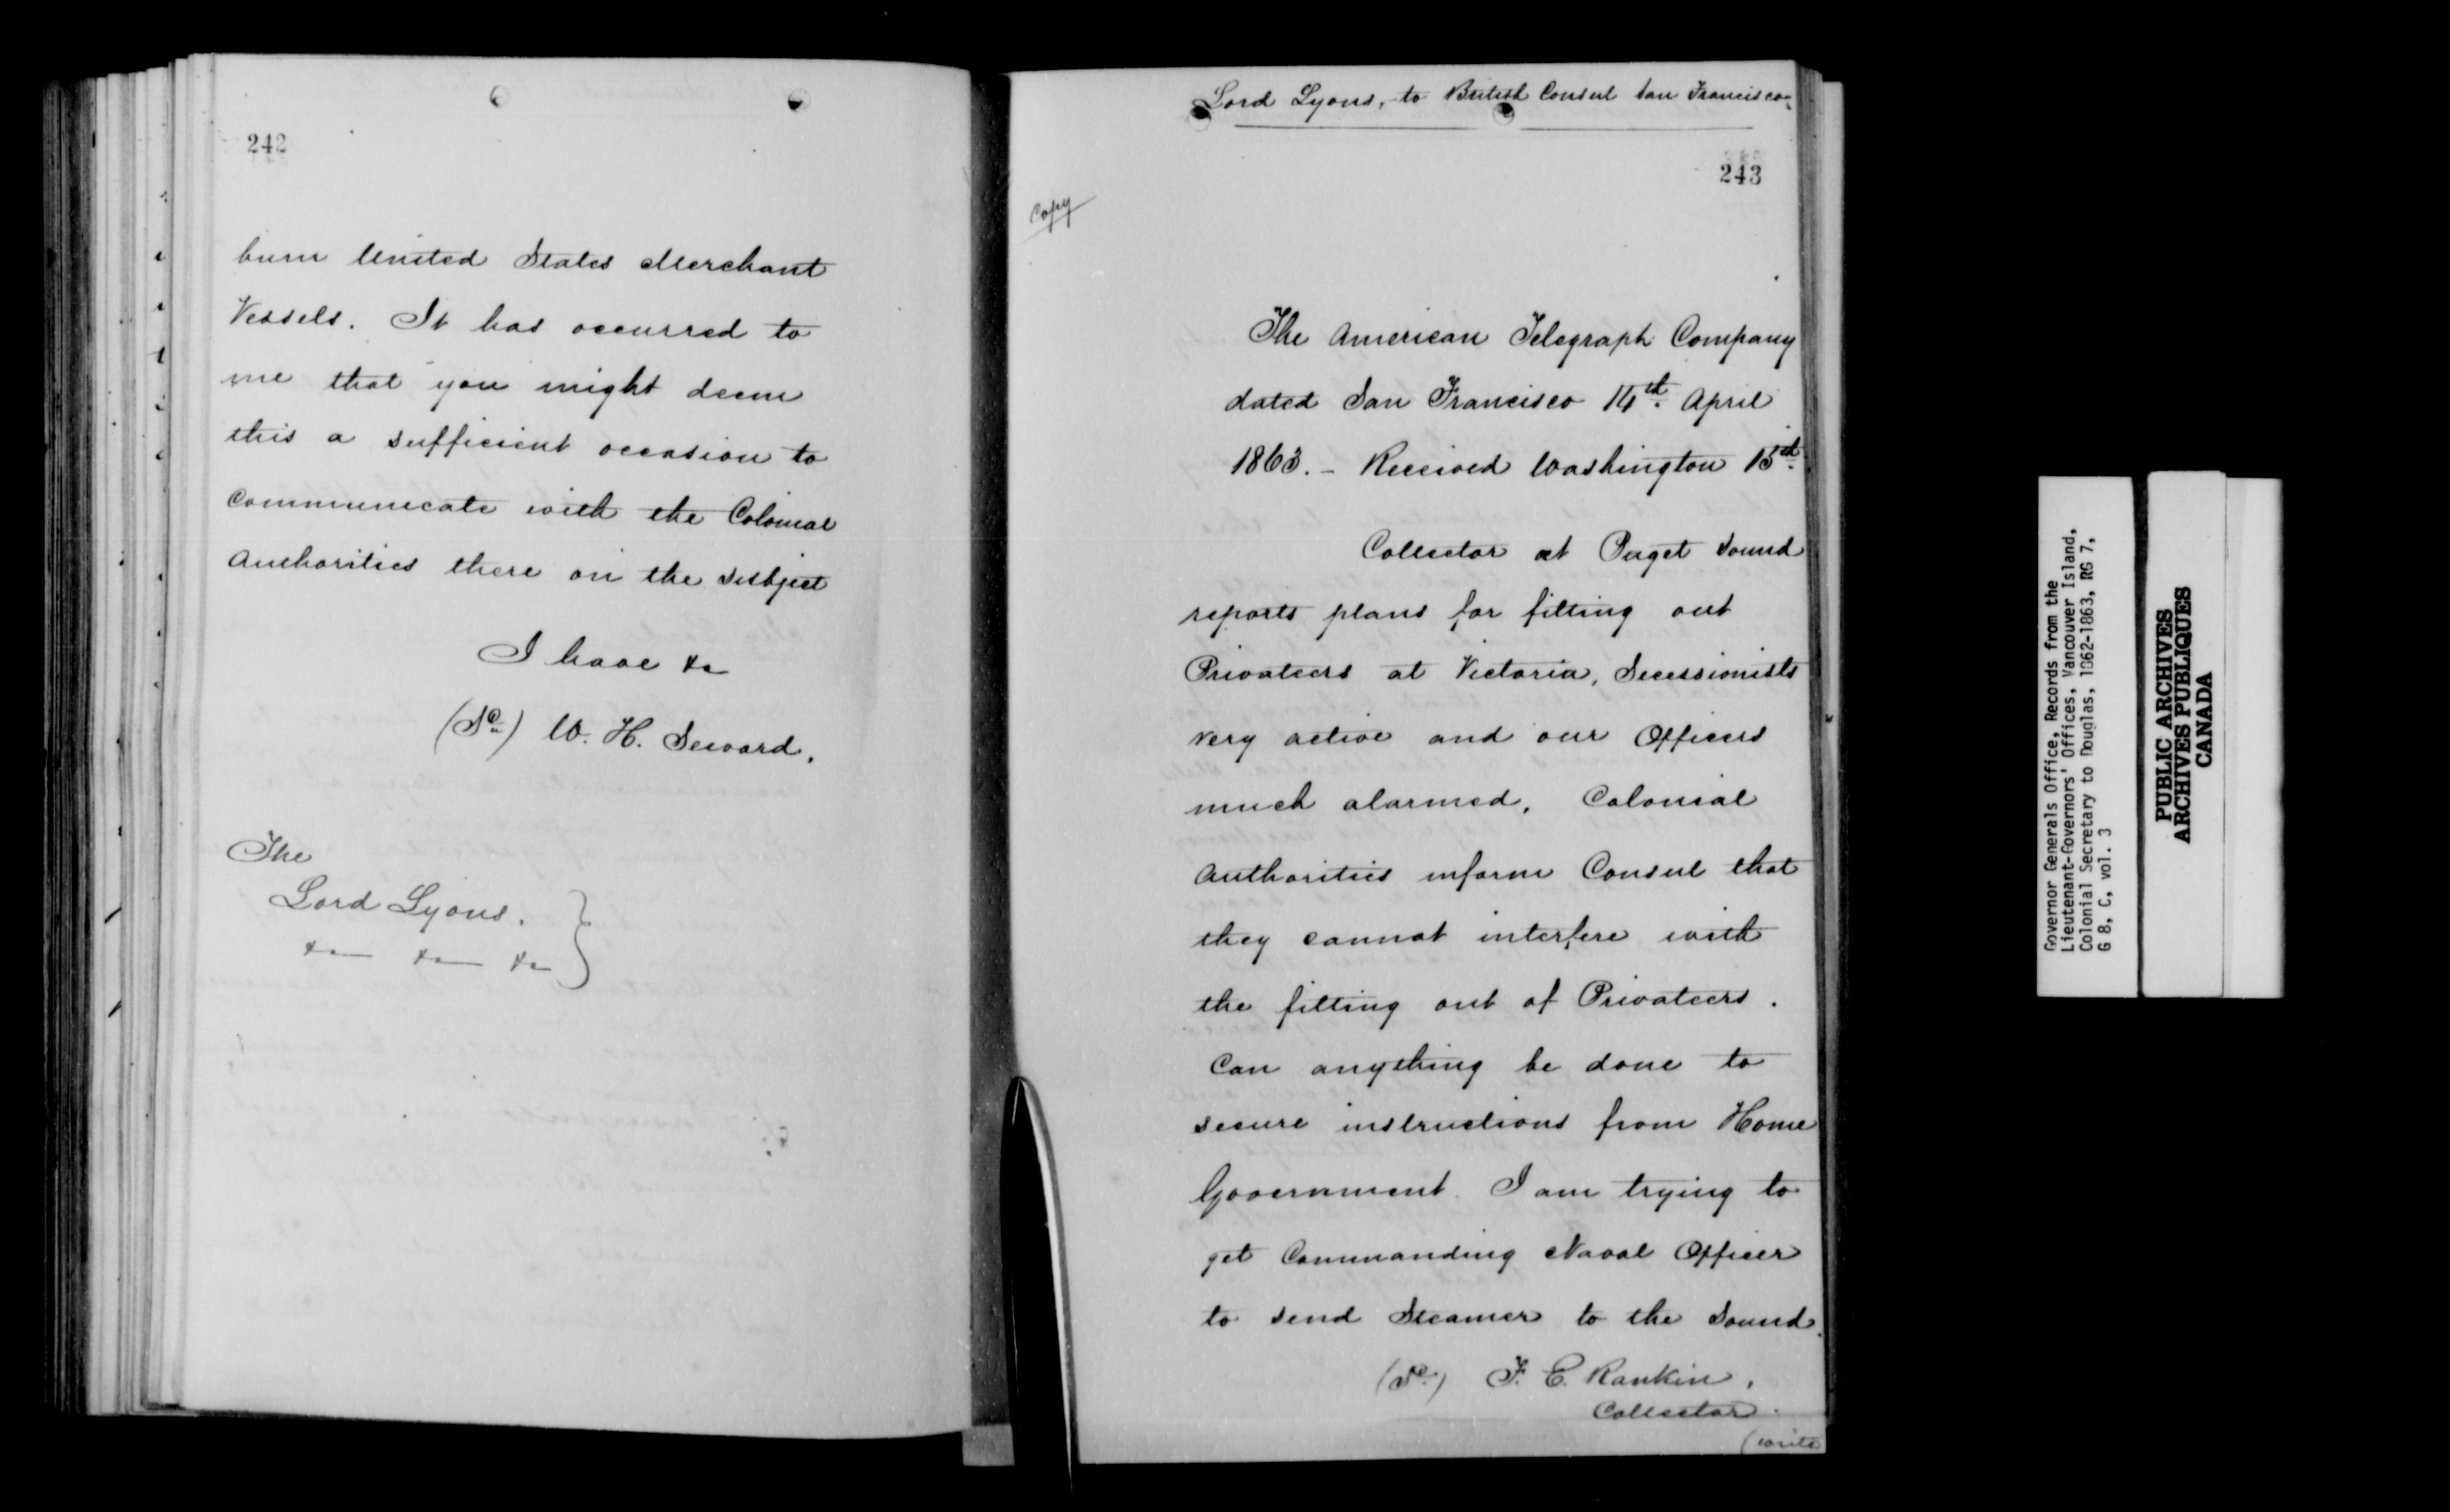 242
burn United States Merchant
Vessels. It has occurred to
me that you might deem
this a sufficient occasion to
communicate with the Colonial
Authorities there on the subject
I have &c
(Sd) W. H. Seward.
The
Lord Lyons.
&c &c &c
Lord Lyons, to British Consul San Francisco.
243
Copy
The American Telegraph Company
dated San Francisco 14th. April
1863. - Received Washington 15th.
Collector at Puget Sound
reports plans for fitting out
Privateers at Victoria, Secessionists
very active and our Officers
much alarmed. Colonial
Authorities inform Consul that
they cannot interfere with
the fitting out of Privateers.
Can anything be done to
secure instructions from Home
Government. I am trying to
get Commanding Naval Officer
to send Steamer to the Sound.
(Sd.) F. C. Rankin,
Collector.
Governor Generals Office, Records from the
Lieutenant-Governors' Offices, Vancouver Island,
Colonial Secretary to Douglas, 1862-1863, RG 7,
G 8, C, vol. 3
PUBLIC ARCHIVES
ARCHIVES PUBLIQUES
CANADA